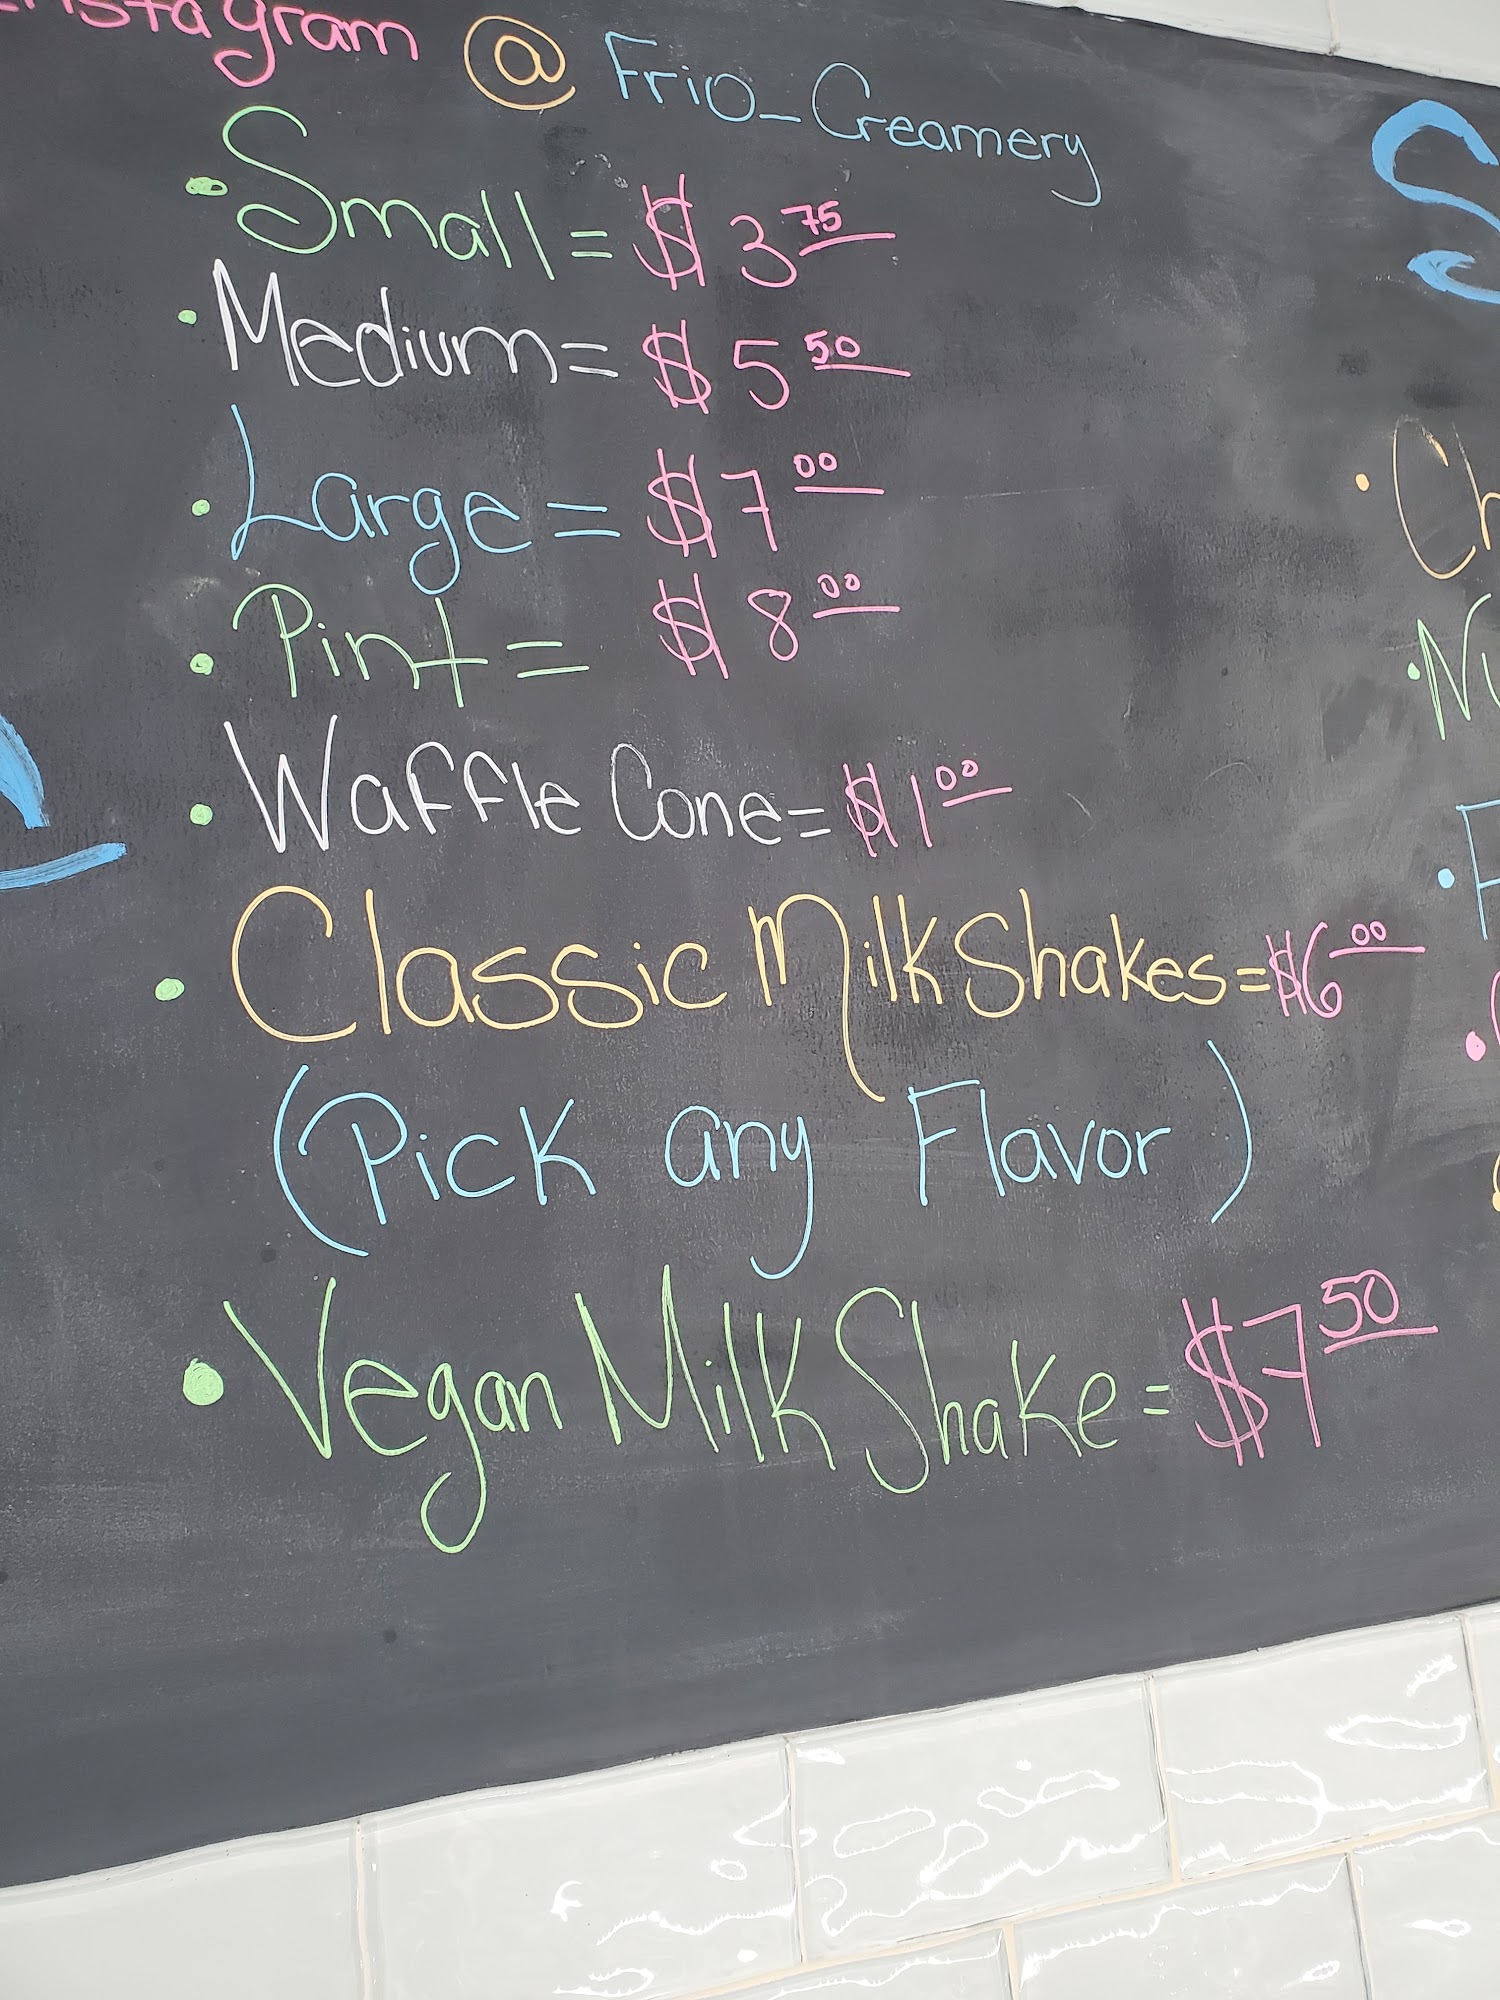 Instagram @ Frio_Creamery
• Small = $3 75
• Medium = $5 50
• Large = $7 00
• Pint = $8 00
• Waffle Cone = $1 00
• Classic Milk Shakes = $6 00
(Pick any Flavor)
• Vegan Milk Shake = $7 50